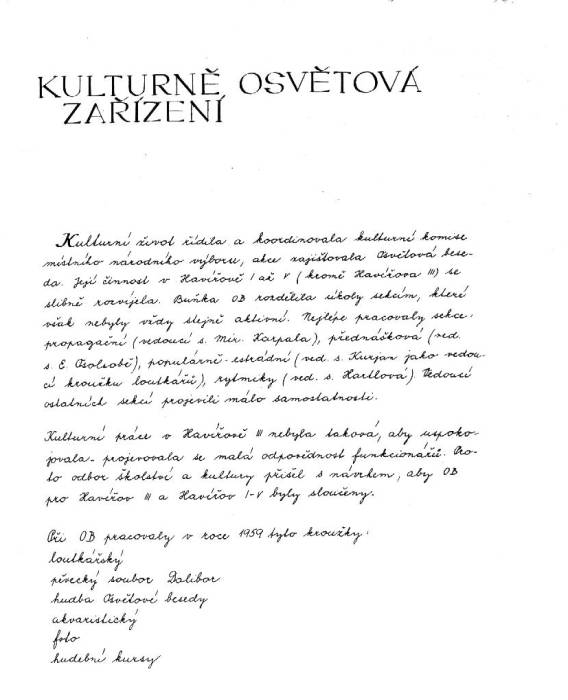 KULTURNĚ OSVĚTOVÁ
ZAŘÍZENÍ
Kulturní život řídila a koordinovala kulturní komise
místního národního výboru, akce zajišťovala Osvětová bese-
da. Její činnost v Havířově I až V (kromě Havířova III) se
slibně rozvíjela. Buňka OB rozdělila úkoly sekcím, které
však nebyly vždy stejně aktivní. Nejlépe pracovaly sekce:
propagační (vedoucí s. Mir. Karpala), přednášková (ved.
s. E. Bolsobě), populárně-estrádní (ved. s. Kurjan jako vedou-
cí kroužku loutkářů), rytmiky (ved. s. Hartlová). Vedoucí
ostatních sekcí projevili málo samostatnosti.
Kulturní práce v Havířově III nebyla taková, aby uspoko-
jovala - projevovala se malá odpovědnost funkcionářů. Pro-
to odbor školství a kultury přišel s návrhem, aby OB
pro Havířov III a Havířov I-V byly sloučeny.
Při OB pracovaly v roce 1959 tyto kroužky:
loutkářský
pěvecký soubor Dalibor
hudba Osvětové besedy
akvaristický
foto
hudební kursy